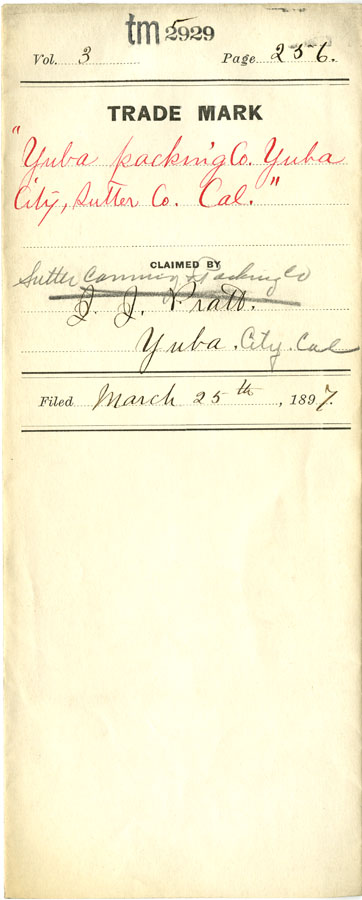 tm 2929
Vol. 3 Page 256.
TRADE MARK
"Yuba packing Co. Yuba
City, Sutter Co. Cal."
CLAIMED BY
Sutter Canning & Packing Co
J. Pratt.
Yuba City Cal
Filed March 25th, 1897.